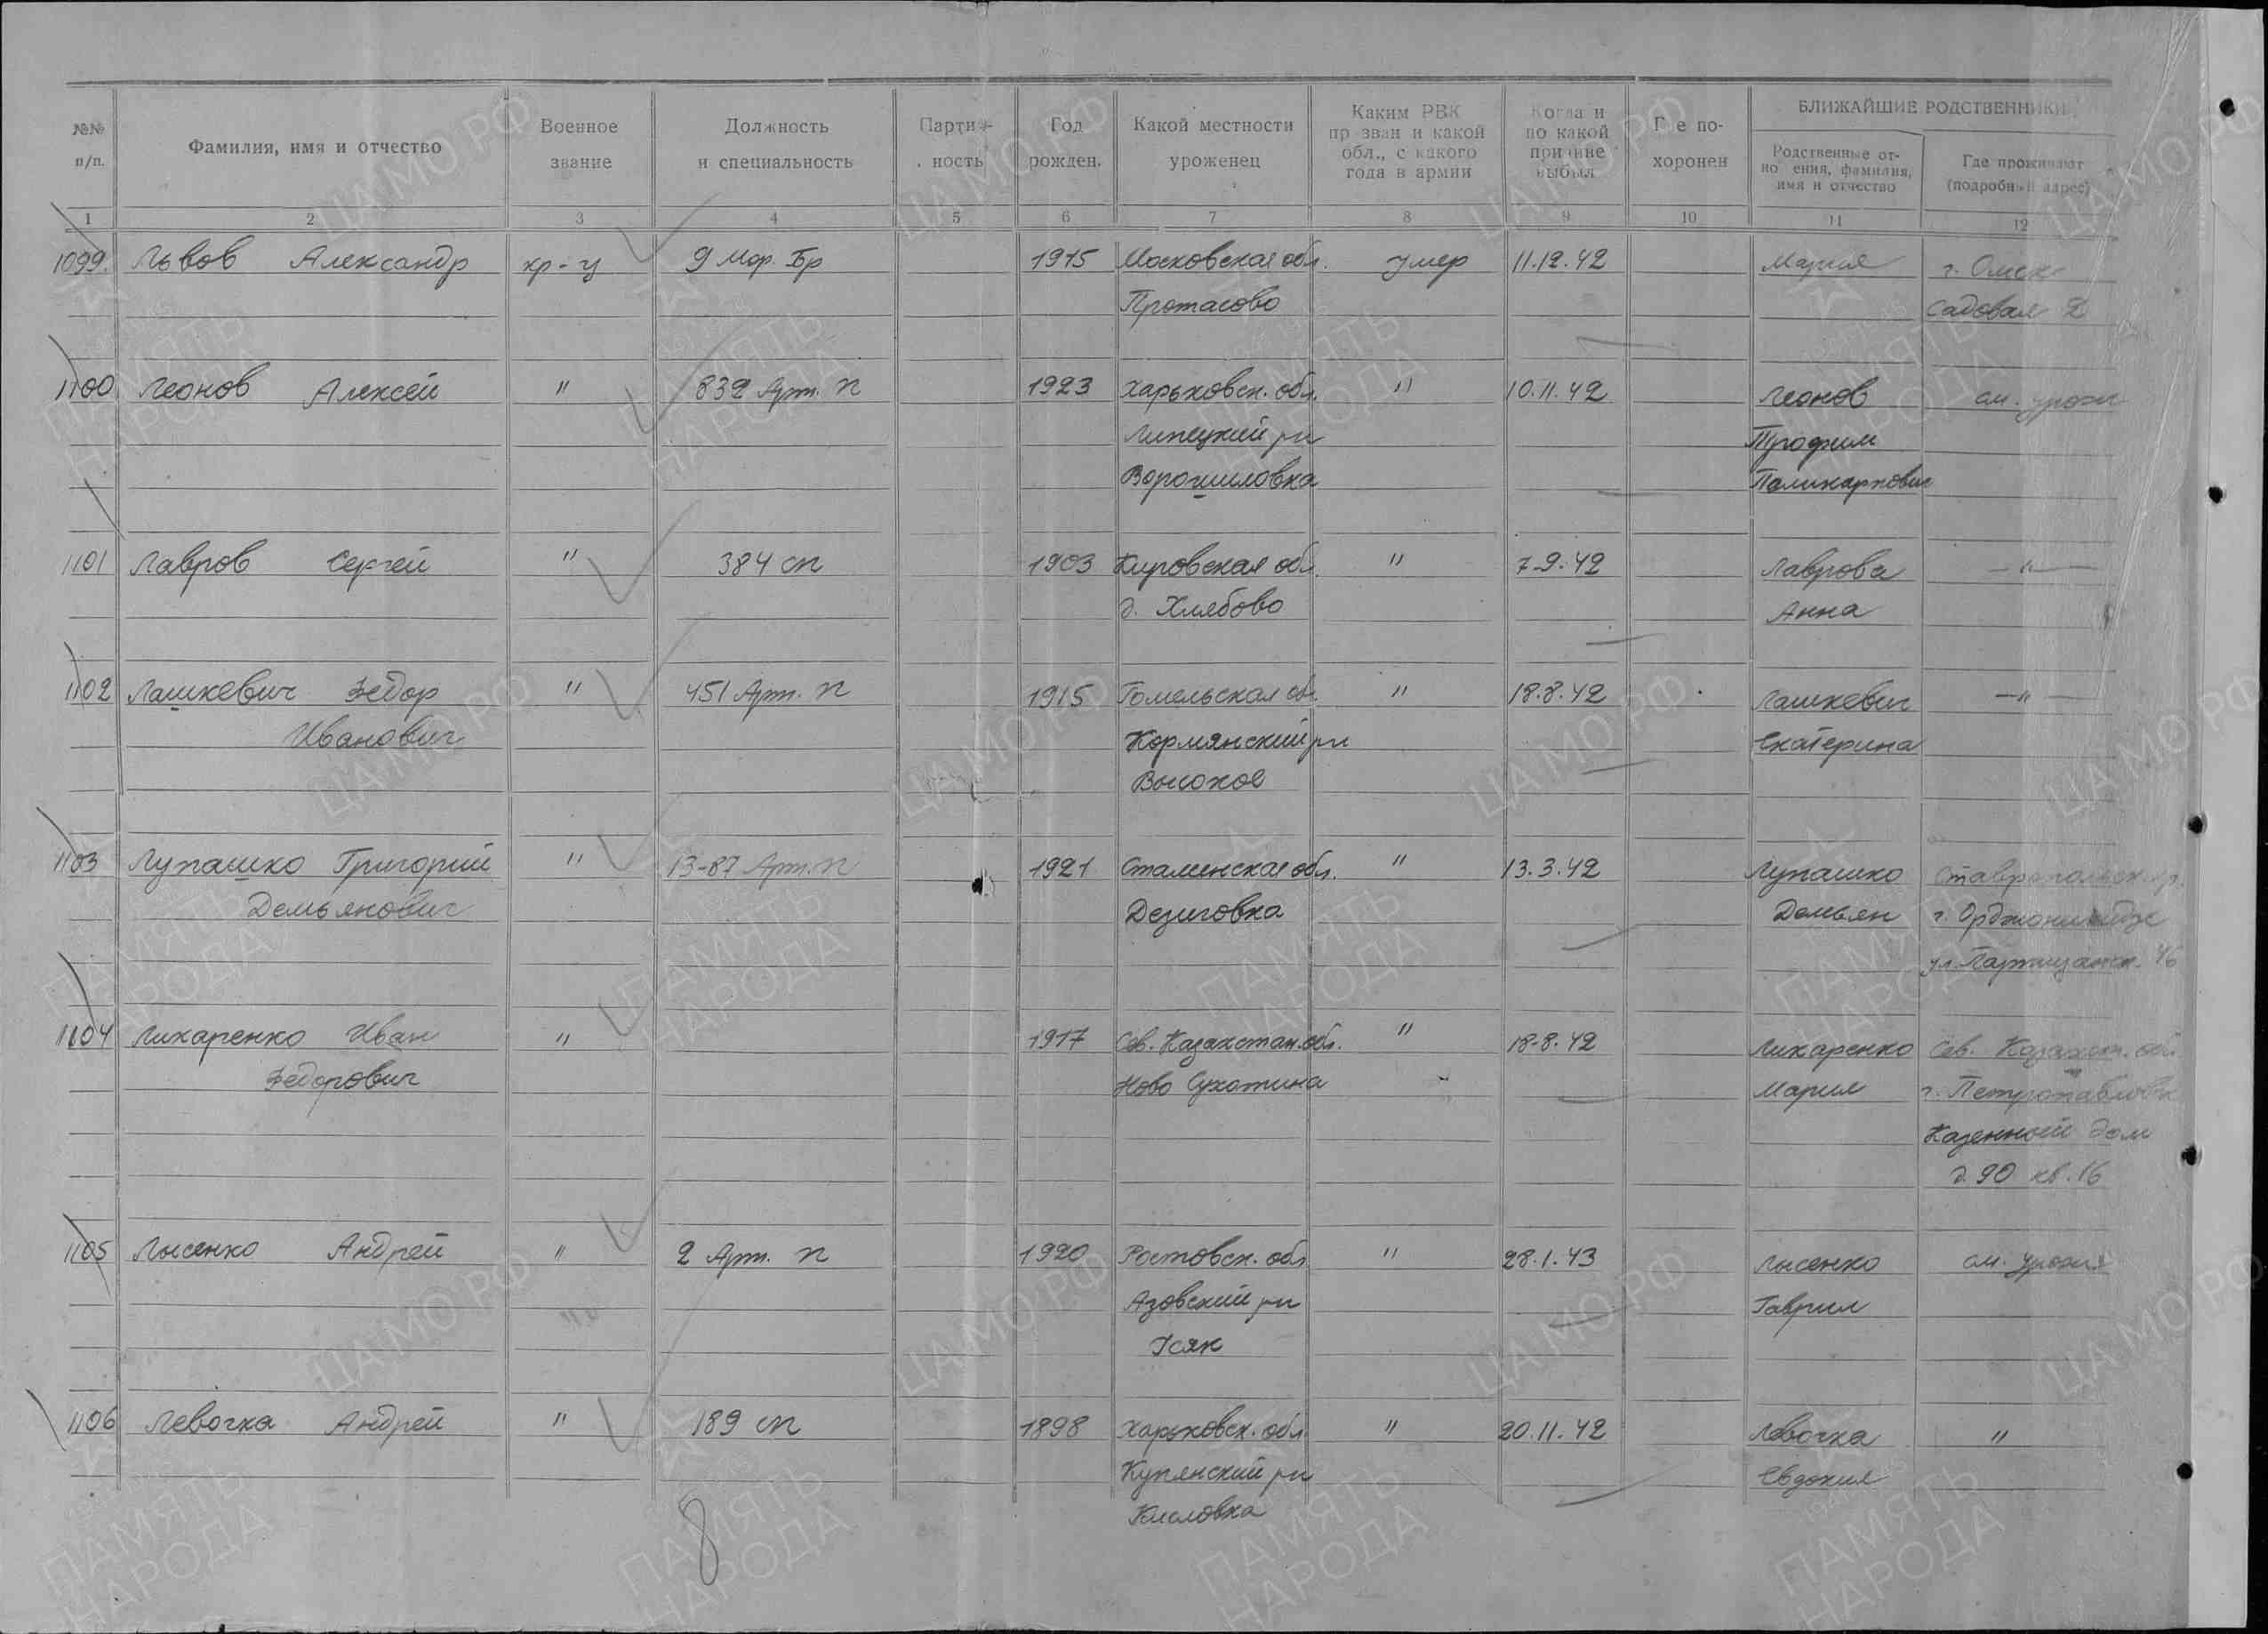 №№ п/п.
Фамилия, имя и отчество
Военное звание
Должность и специальность
Партий- ность
Год рожден.
Какой местности уроженец
Каким РВК призван и какой обл., с какого года в армии
Когда и по какой причине выбыл
Где по- хоронен
БЛИЖАЙШИЕ РОДСТВЕННИКИ
Родственные от- ношения, фамилия, имя и отчество
Где проживают (подробный адрес)
1 2 3 4 5 6 7 8 9 10 11 12
1099. Львов Александр кр-ц 9 Мор. Бр 1915 Московская обл. умер 11.12.42 Мария г. Омск
Протасово Садовая 2
1100 Леонов Алексей " 832 Арт. п 1923 Харьковск. обл. " 10.11.42 Леонов см. урож
Липецкий рн Трофим
Ворошиловка Поликарпович
1101 Лавров Сергей " 384 сп 1903 Кировская обл. " 7-9.42 Лаврова — " —
д. Хлябово Анна
1102 Лашкевич Федор " 451 Арт. п 1915 Гомельская обл. " 18.8.42 Лашкевич — " —
Иванович Кормянский рн Екатерина
Высокое
1103 Лупашко Григорий " 13-87 Арт. п 1921 Сталинская обл. " 13.3.42 Лупашко Ставропольск. кр.
Демьянович Дезиговка Демьян г. Орджоникидзе
ул. Партизанск. 46
1104 Лихаренко Иван " 1917 Сев. Казахстан. обл. " 18-8.42 Лихаренко Сев. Казахст. обл.
Федорович Ново Сухотина Мария г. Петропавловск
Казенный дом
д. 90 кв. 16
1105 Лысенко Андрей " 2 Арт. п 1920 Ростовск. обл " 28.1.43 Лысенко см. урож
Азовский рн Гаврил
Усяк
1106 Левочка Андрей " 189 сп 1898 Харьковск. обл " 20.11.42 Левочка "
Купянский рн Евдокия
Кисловка
8
ЦА МО РФ
ПАМЯТЬ НАРОДА